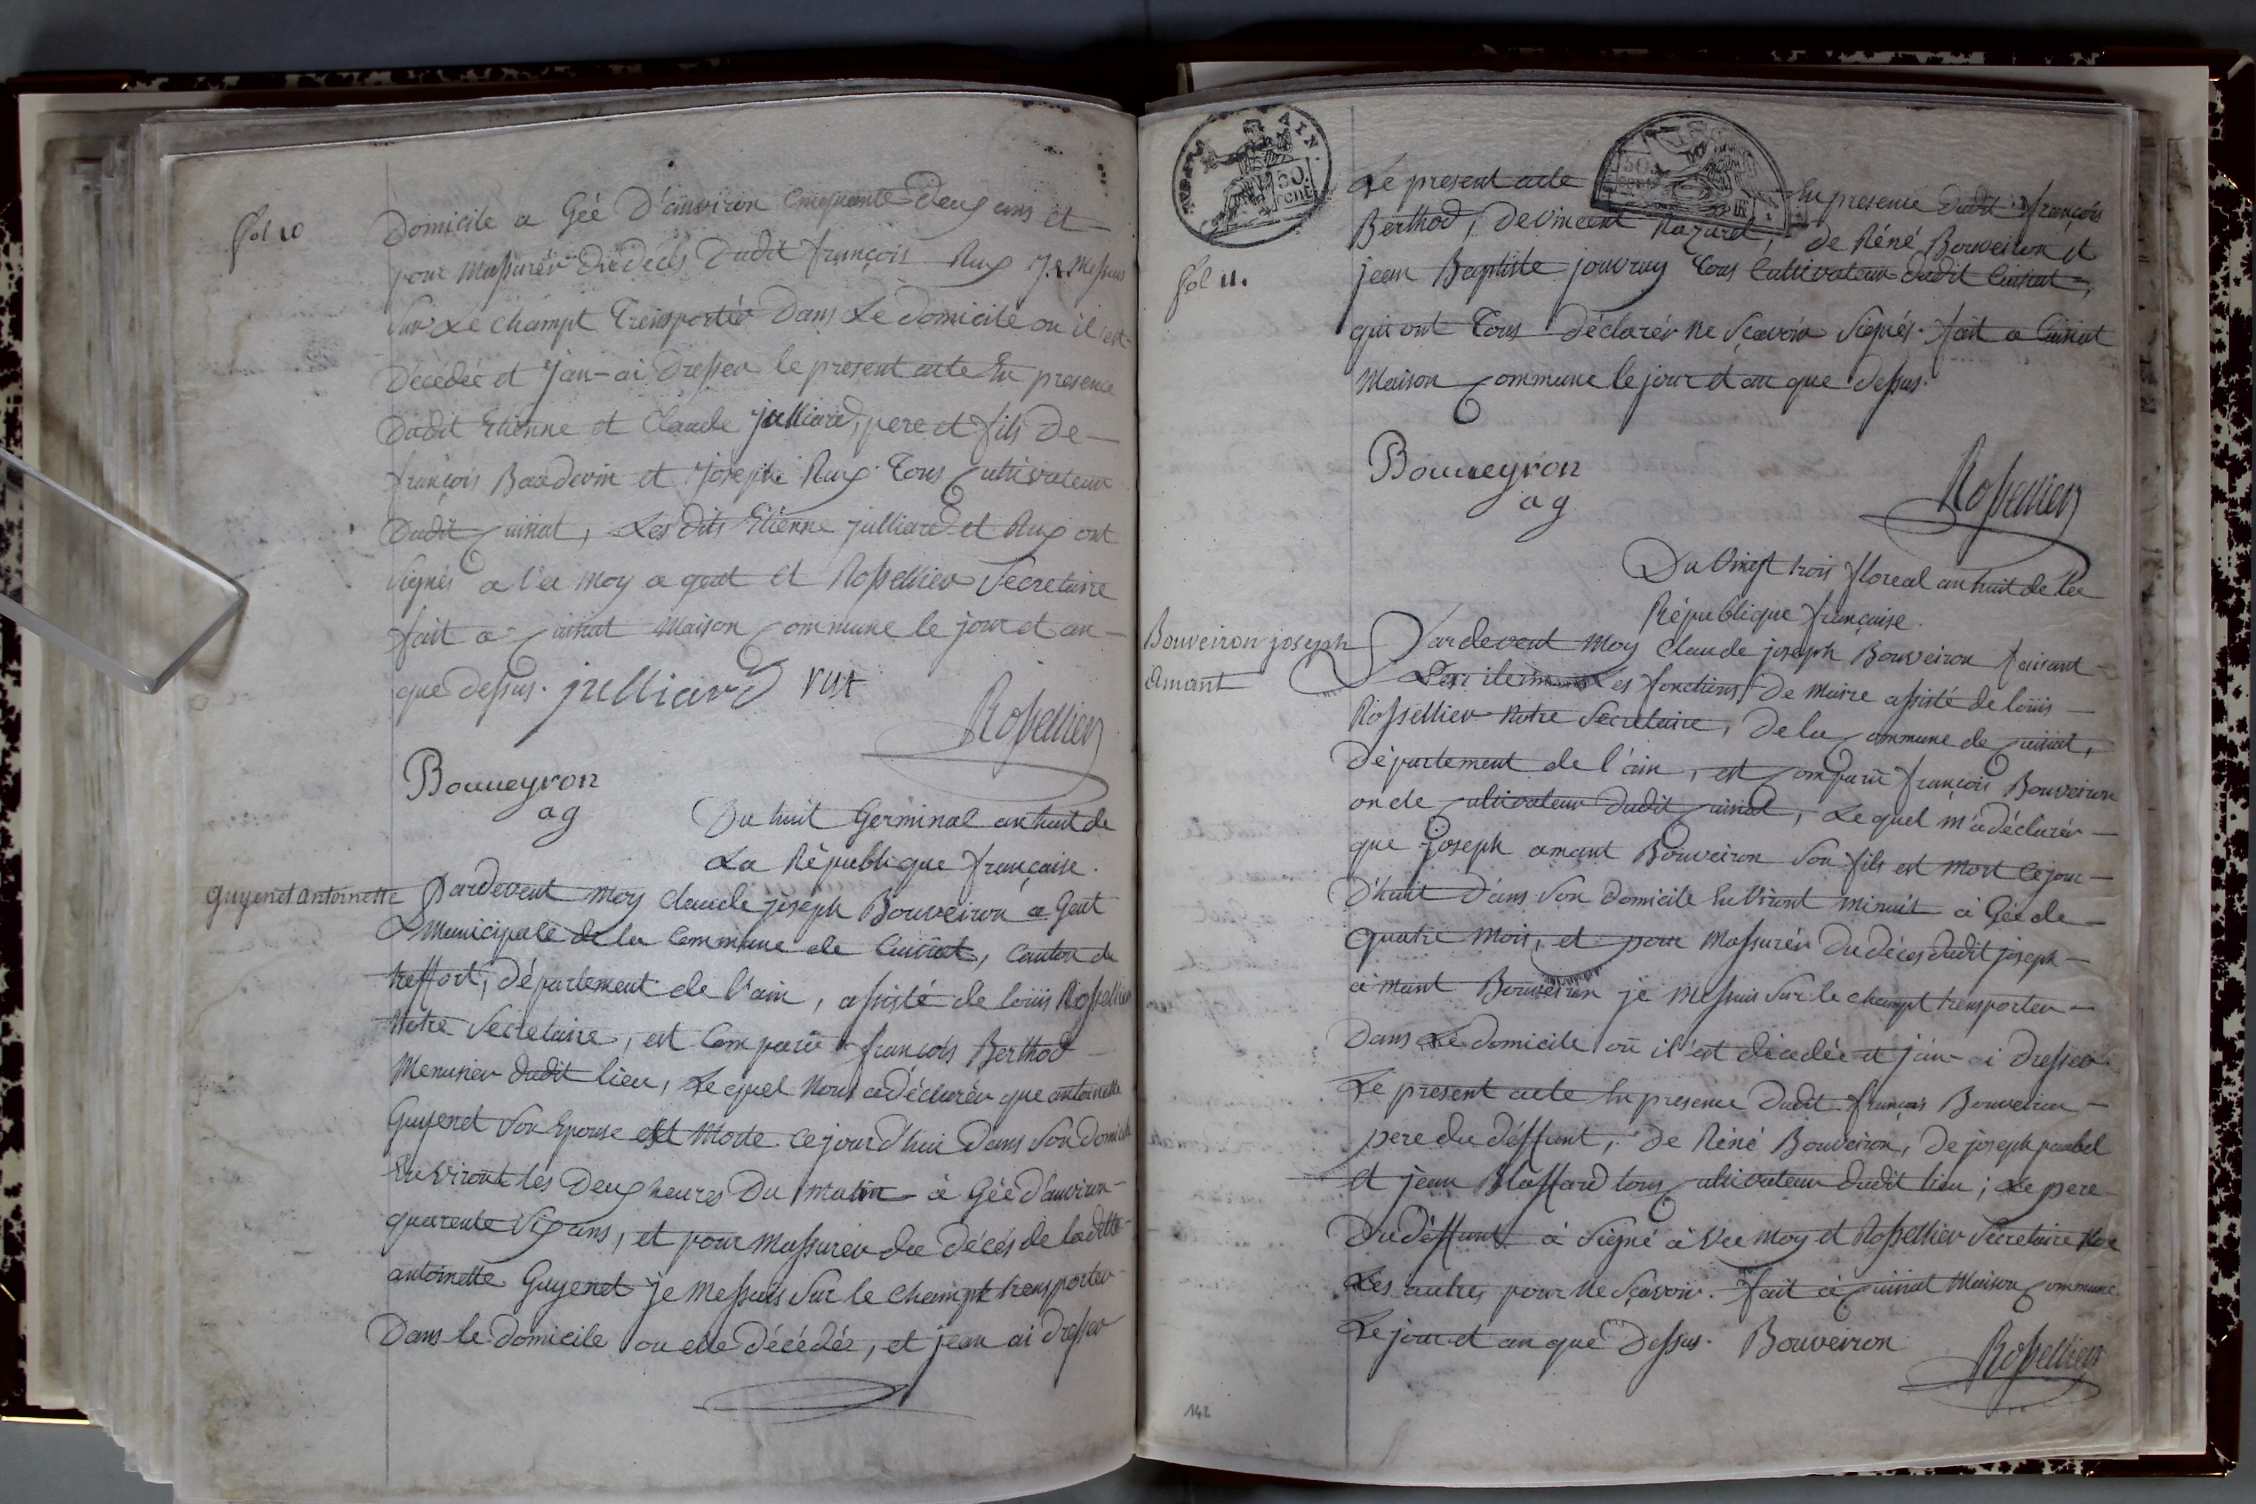 fol 10
Domicile a Géé D'anviron Cinquante Deux ans et
pour Massurér du décés Dudit françois Rux Je Messuis
Sur Le Champt Trensportér Dans Le Domicile ou il est
Décédéé et J'an-ai Dresser le present acte En presence
Dudit Etienne et Claude julliard, pere et fils De
françois Baudevin et Joseph Rux Tous Cultivateur
Dudit Cuisiat, Les dits Etienne julliard et Rux ont
signés a vec Moy a gent et Rossellier Secretaire
fait a Cuisiat Maison Commune le jour et an
que dessus. julliard rux
Rossellier
Bouueyron
ag
Du huit Germinal an huit de
La République française.
guyenet antoinette
Pardevent Moy Claude joseph Bouveiron a Gent
Municipale de la Commune de Cuisiat, Canton de
treffort, département de l'ain, assisté de loüis Rossellier
Notre Secretaire, est Comparû françois Berthod
Menusier dudit lieu, Le quel Nous a déclarér que antoinette
Guyenet Son Epouse est Morte ce jour d'hui Dans Son domicile
Environt les Deux heures Du Matin à Géé d'anviron
quarente Six ans, et pour Massurer du décés de la ditte
antoinette Guyenet je Messuis Sur le Champt trensporter
Dans le domicile ou elle décédéé, et jean ai dresser
AIN
50. CENT
fol 11.
Le present acte En presence dudit françois
Berthod, De Vincent Nazaret, De Réné Bouveiron et
jean Baptiste jouvray Tous Cultivateur dudit Cuisiat,
qui ont Tous Déclarér Ne Sçavoir Signés. fait a Cuisiat
Maison Commune le jour et an que dessus.
Bouueyron
ag
Rossellier
Du Vingt trois floreal an huit de la
République française.
Bouveiron joseph
amant
Pardevent Moy Claude joseph Bouveiron faisant
Les fonctions De Maire assisté de loüis
Rossellier Notre Secretaire, De la Commune de Cuisiat,
Département de l'ain, est Comparû françois Bouveiron
oncle Cultivateur Dudit Cuisiat, Le quel M'a déclarér
que joseph amant Bouveiron Son fils est Mort Ce jour
D'huit Dans Son Domicile Environt Minuit à Géé de
quatre Mois, et pour Massurér Du déces dudit joseph
à mant Bouveiron je Messuis Sur le champt trensporter
Dans Le domicile où il est décédéé et j'an ai Dresser
Le present acte En presence Dudit françois Bouveiron
pere du déffunt, De Réné Bouveiron, De joseph
et jean Blassard tous Cultivateur dudit lieu; Le pere
Du déffunt à Signé à Vec Moy et Rossellier Secretaire Non
Les autres pour Ne Sçavoir. fait à Cuisiat Maison Commune
Le jour et an que Dessus. Bouveiron
Rossellier
142